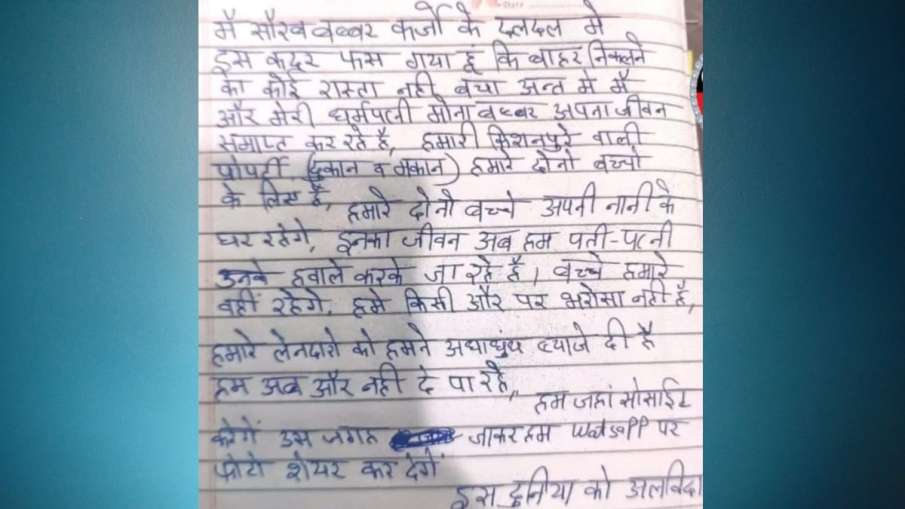 मै सौरव बब्बर कर्जो के दलदल मे
इस कद्दर फस गया हूं कि बाहर निकलने
का कोई रास्ता नही बचा अन्त मे मै
और मेरी धर्मपत्नी मोना बब्बर अपना जीवन
समाप्त कर रहे है, हमारी किशनपुरे वाली
प्रोपर्टी (दुकान व मकान) हमारे दोनो बच्चो
के लिए है, हमारे दोनो बच्चे अपनी नानी के
घर रहेगे, इनका जीवन अब हम पती-पत्नी
उनके हवाले करके जा रहे है। बच्चे हमारे
वही रहेगे, हमे किसी और पर भरोसा नही है,
हमारे लेनदारो को हमने अंधाधुंध ब्याजे दी है
हम अब और नही दे पा रहे,
हम जहां सोसाईट
करेगें उस जगह जाकर हम Watsapp पर
फोटो शेयर कर देगें
इस दुनिया को अलविदा